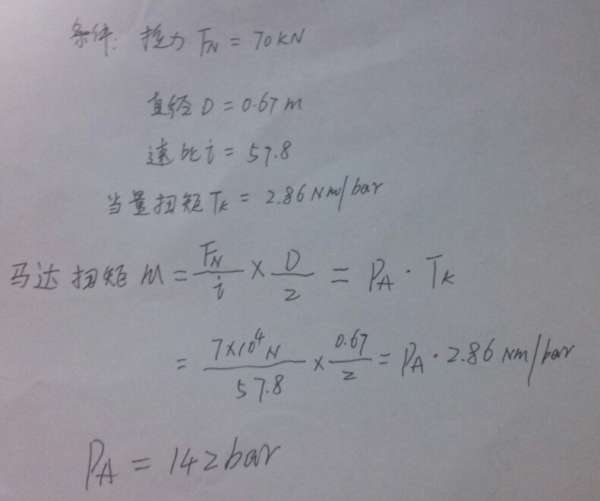 条件: 拉力 FN = 70KN
直径 D = 0.67m
速比 i = 57.8
当量扭矩 TK = 2.86 Nm/bar
马达扭矩 M = FN/i × D/2 = PA · TK
= 7×10⁴N/57.8 × 0.67/2 = PA · 2.86 Nm/bar
PA = 142bar